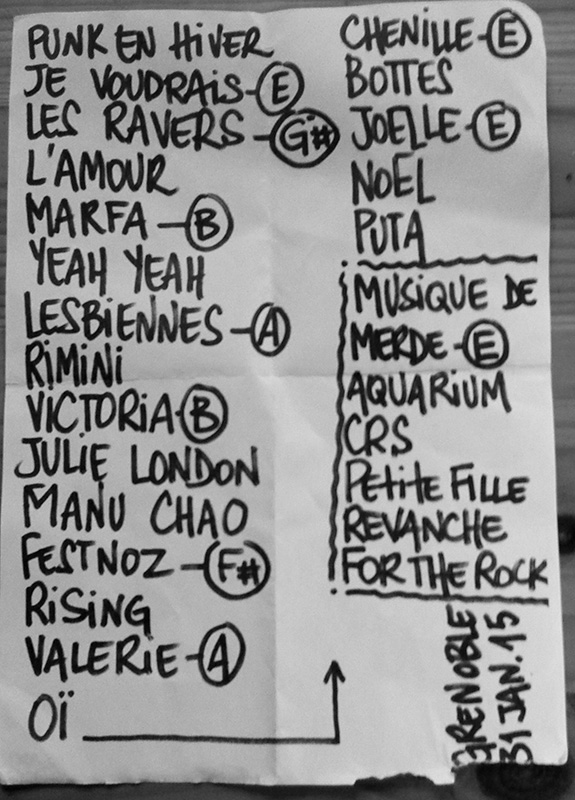 PUNK EN HIVER
JE VOUDRAIS-Ⓔ
LES RAVERS-(G#)
L'AMOUR
MARFA-Ⓑ
YEAH YEAH
LESBIENNES-Ⓐ
RIMINI
VICTORIA-Ⓑ
JULIE LONDON
MANU CHAO
FESTNOZ-(F#)
RISING
VALERIE-Ⓐ
OÏ
CHENILLE-Ⓔ
BOTTES
JOELLE-Ⓔ
NOEL
PUTA
MUSIQUE DE
MERDE-Ⓔ
AQUARIUM
CRS
PETITE FILLE
REVANCHE
FOR THE ROCK
GRENOBLE
31 JAN. 15